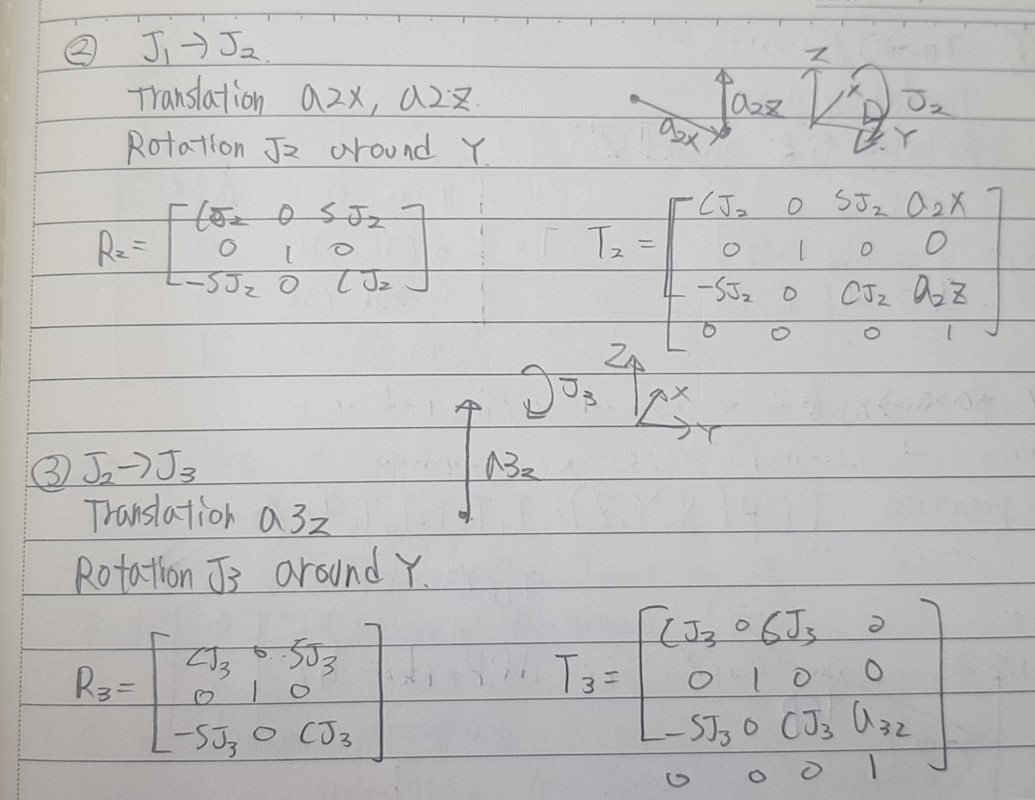 ② J₁→J₂.
Translation a2x, a2z.
a2x a2z Z X Y J₂
Rotation J₂ around Y.
R₂ = [ CJ₂ 0 SJ₂
0 1 0
-SJ₂ 0 CJ₂ ]
T₂ = [ CJ₂ 0 SJ₂ a₂x
0 1 0 0
-SJ₂ 0 CJ₂ a₂z
0 0 0 1 ]
J₃ Z X Y
③ J₂→J₃
a3z
Translation a3z
Rotation J₃ around Y.
R₃ = [ CJ₃ 0 SJ₃
0 1 0
-SJ₃ 0 CJ₃ ]
T₃ = [ CJ₃ 0 SJ₃ 0
0 1 0 0
-SJ₃ 0 CJ₃ a₃z
0 0 0 1 ]